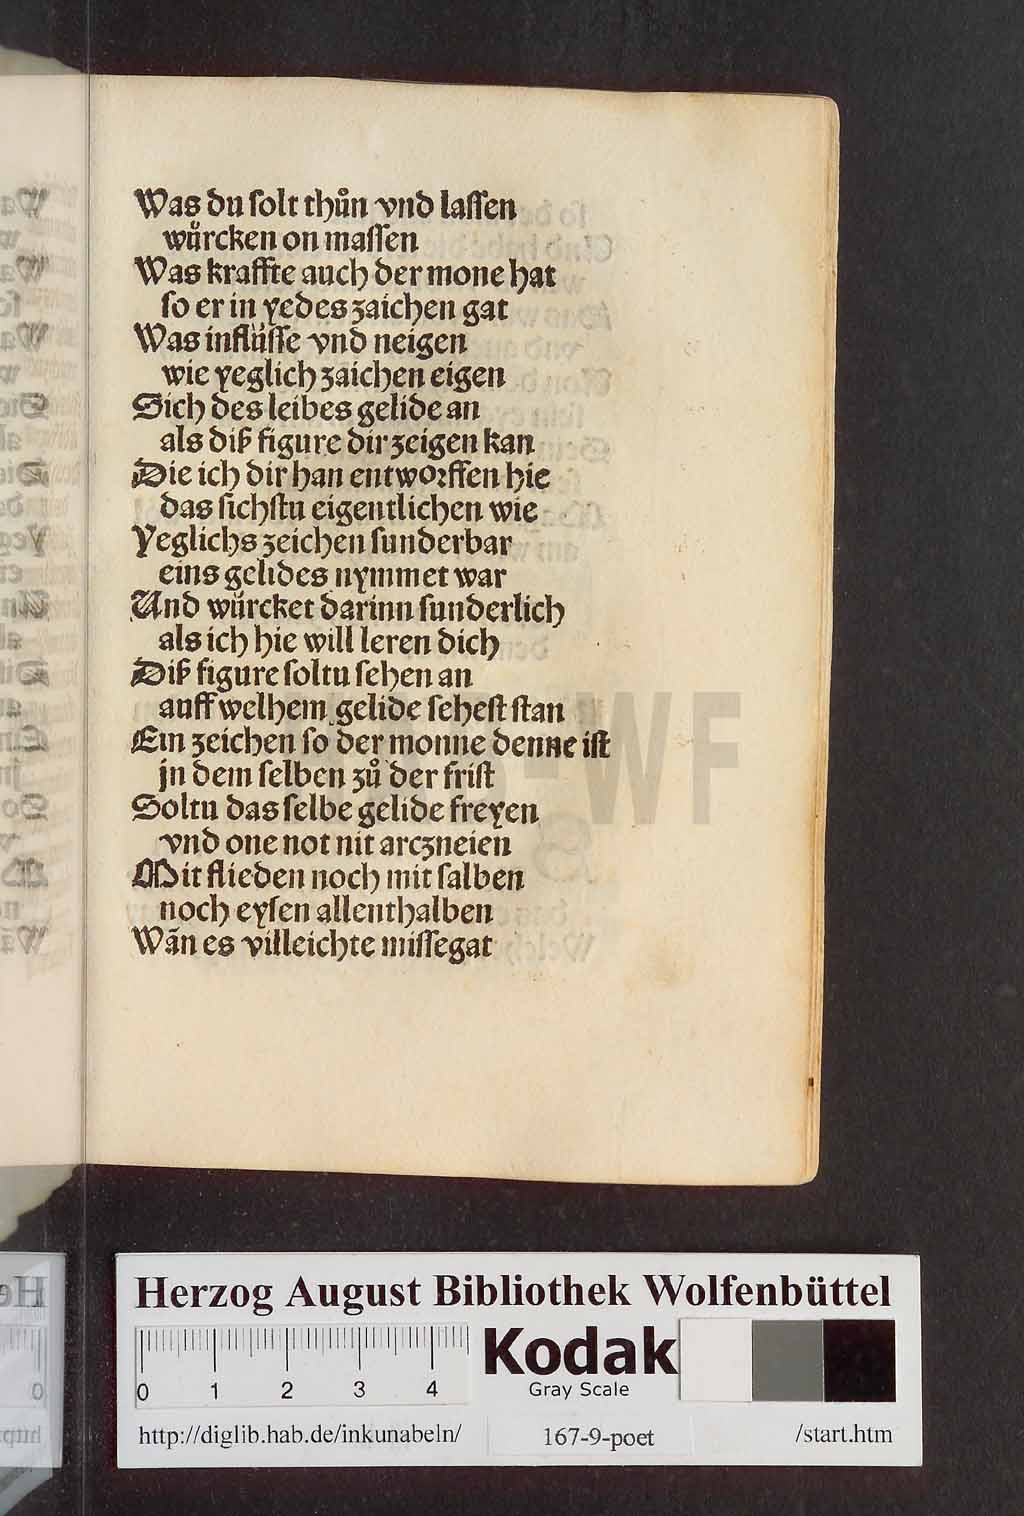 Was du ſolt thůn vnd laſſen
wůrcken on maſſen
Was kraffte auch der mone hat
ſo er in yedes zaichen gat
Was inflüſſe vnd neigen
wie yeglich zaichen eigen
Sich des leibes gelide an
als diß figure dir zeigen kan
Die ich dir han entworffen hie
das ſichſtu eigentlichen wie
Yeglichs zeichen ſunderbar
eins gelides nymmet war
Und würcket darinn ſunderlich
als ich hie will leren dich
Diß figure ſoltu ſehen an
auff welhem gelide ſeheſt ſtan
Ein zeichen ſo der monne denne iſt
jn dem ſelben zů der friſt
Soltu das ſelbe gelide freyen
vnd one not nit arczneien
Mit flieden noch mit ſalben
noch eyſen allenthalben
Wãn es villeichte miſſegat
HAB-WF
Herzog August Bibliothek Wolfenbüttel
0 1 2 3 4
Kodak
Gray Scale
http://diglib.hab.de/inkunabeln/ 167-9-poet /start.htm